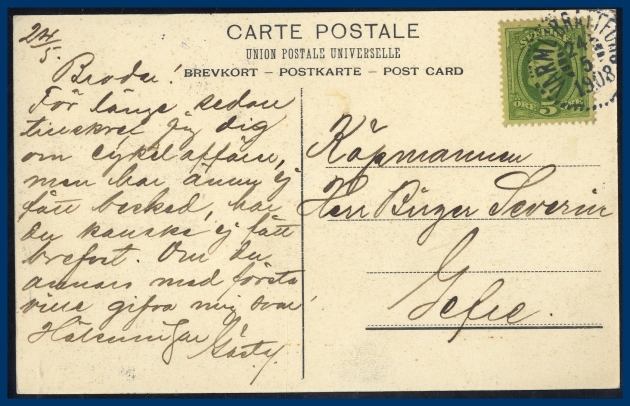 CARTE POSTALE
UNION POSTALE UNIVERSELLE
BREVKORT – POSTKARTE – POST CARD
24/5.
Broder!
För länge sedan
tillskref jag dig
om cykelaffären,
men har ännu ej
fått besked, har
du kanske ej fått
brefvet. Om du
annars med första
ville gifva mig svar!
Hälsningar Gösta
Köpmannen
Herr Birger Severin
Gefle.
SVERIGE
5 ÖRE 5
24 5 1908